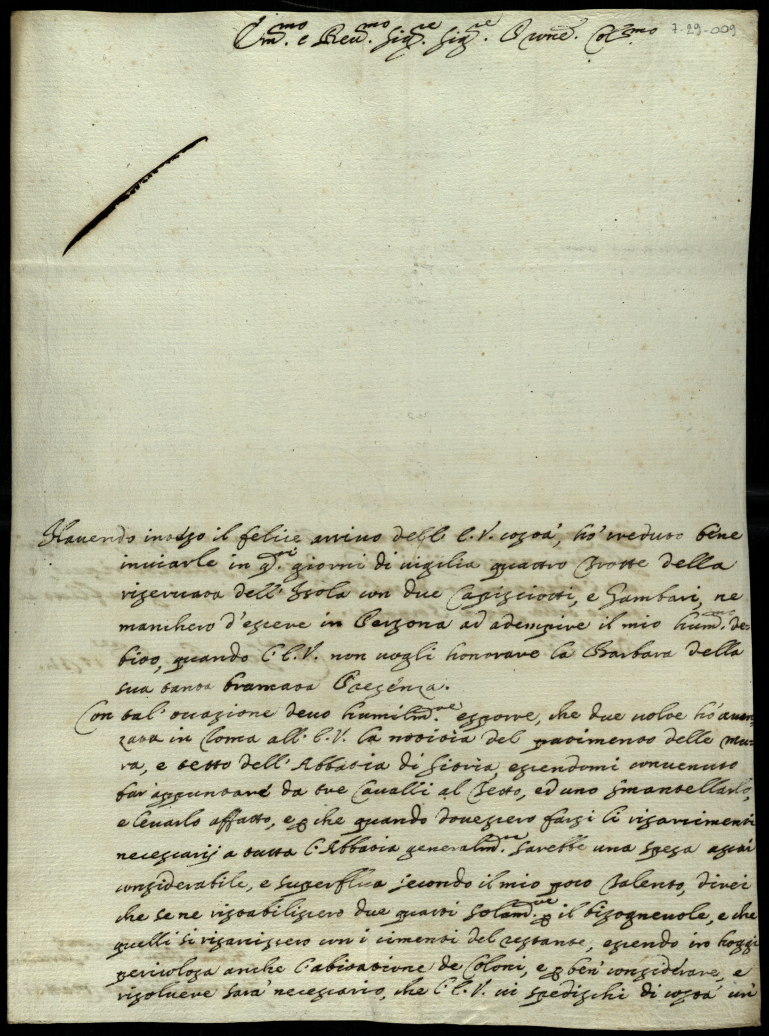 Em.mo e Reu.mo Sig.re Sig.re P'rone Col.mo 7-29-009
Hauendo inteso il felice arriuo dell' E.V. costà, hò creduto bene
inuiarle in q.ti giorni di uigilia quattro Trotte della
riseruata dell' Isola con due Capisciotti, e Gambari, ne
mancherò d'essere in Persona ad adempire il mio hum.mo de-
bito, quando l'E.V. non uogli honorare la Barbara della
sua tanto bramata Presenza.
Con tal' occasione deuo humilm.te esporre, che due uolte hò auan-
zata in Roma all' E.V. la notitia del patimento delle mu-
ra, e tetto dell' Abbatia di Sitria, essendomi conuenuto
far appuntare da tre Caualli al Tetto, ed uno smantellarlo,
e leuarlo affatto, e p che quando douessero farsi li risarcimenti
necessarij a tutta l'Abbatia generalm.te sarebbe una spesa assai
considerabile, e superflua secondo il mio poco talento, direi
che se ne ristabilissero due quarti solam.te p il bisogneuole, e che
quelli si risarcissero con i cimenti del restante, essendo in hoggi
pericolosa anche l'abitatione de Coloni, e p ben' considerare, e
risoluere sarà necessario, che l'E.V. ui spedischi di costà un'